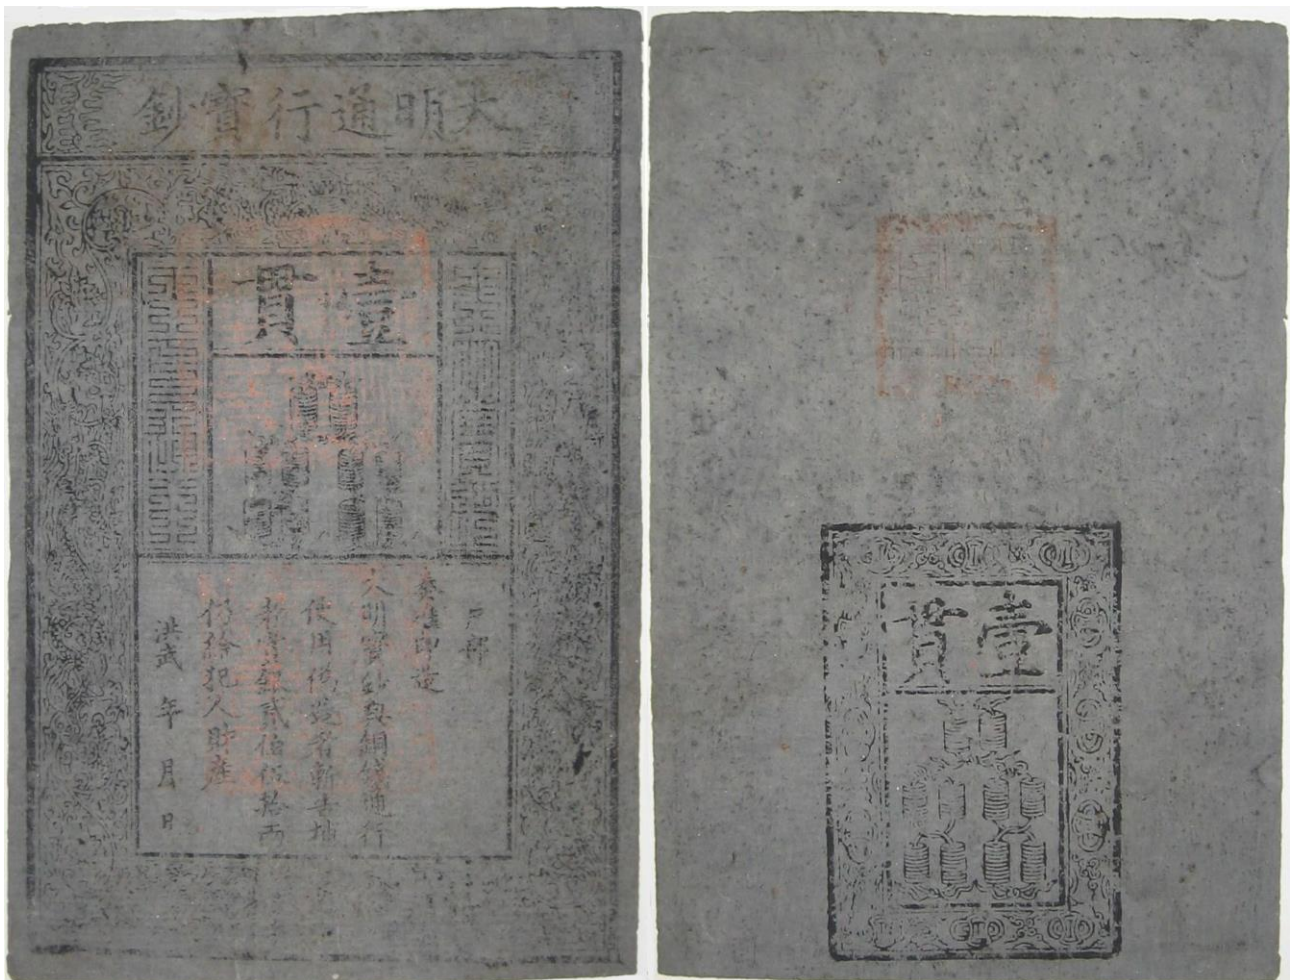 大明通行寶鈔
壹貫
戶部
奏准印造
大明寶鈔與銅錢通行
使用偽造者斬告捕
者賞銀貳伯伍拾兩
仍給犯人財産
洪武 年 月 日
壹貫